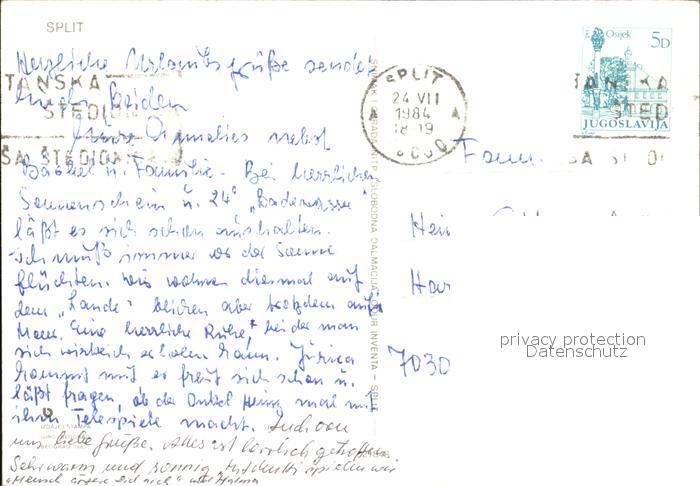 SPLIT
Herzliche Urlaubsgrüße sendet
Euch beiden
Eure Annelies nebst
Bärbel u. Familie. Bei herrlichem
Sonnenschein u. 24° „Badewasser"
läßt es sich schon aushalten.
Ich muß immer vor der Sonne
flüchten. Wir wohnen diesmal auf
dem „Lande" blicken aber trotzdem aufs
Meer. Eine herrliche Ruhe, bei der man
sich wirklich erholen kann.
kommt mit er freut sich schon u.
läßt fragen, ob der Onkel Heinz mal mit
ihm Telespiele macht. Auch von
uns liebe Grüße. Alles ist herrlich getroffen.
Sehr warm und sonnig, mit Mutti spielen wir
„Mensch ärgere Dich nicht" und Halma
TANSKA
ŠTEDIO
ŠA ŠTEDIO
SPLIT
24 VII
1984
18-19
Osijek
5D
JUGOSLAVIJA
TANSKA
ŠTED
Fam
Hein
Har
7030
privacy protection
Datenschutz
SLOBODNA DALMACIJA
INVENTA - SPLIT